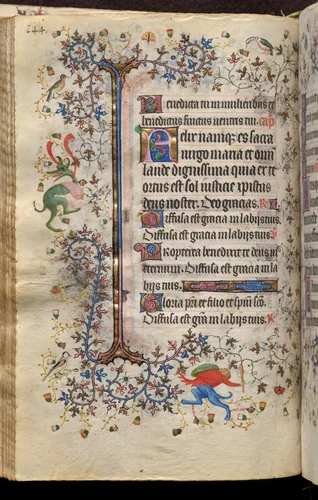 244.
Benedicta tu in mulieribus et
benedictus fructus uentris tui. cap
Felix namqz es sacra
uirgo maria et omi
laude dignissima quia ex te
ortus est sol iusticie xpistus
deus noster. Deo gracias. R
Diffusa est gracia in labijs tuis.
Diffusa est gracia in labijs tuis.
Propterea benedixit te deus in
eternum. Diffusa est gracia in la
bijs tuis.
Gloria pri et filio et spui sco.
Diffusa est gra in labijs tuis. R